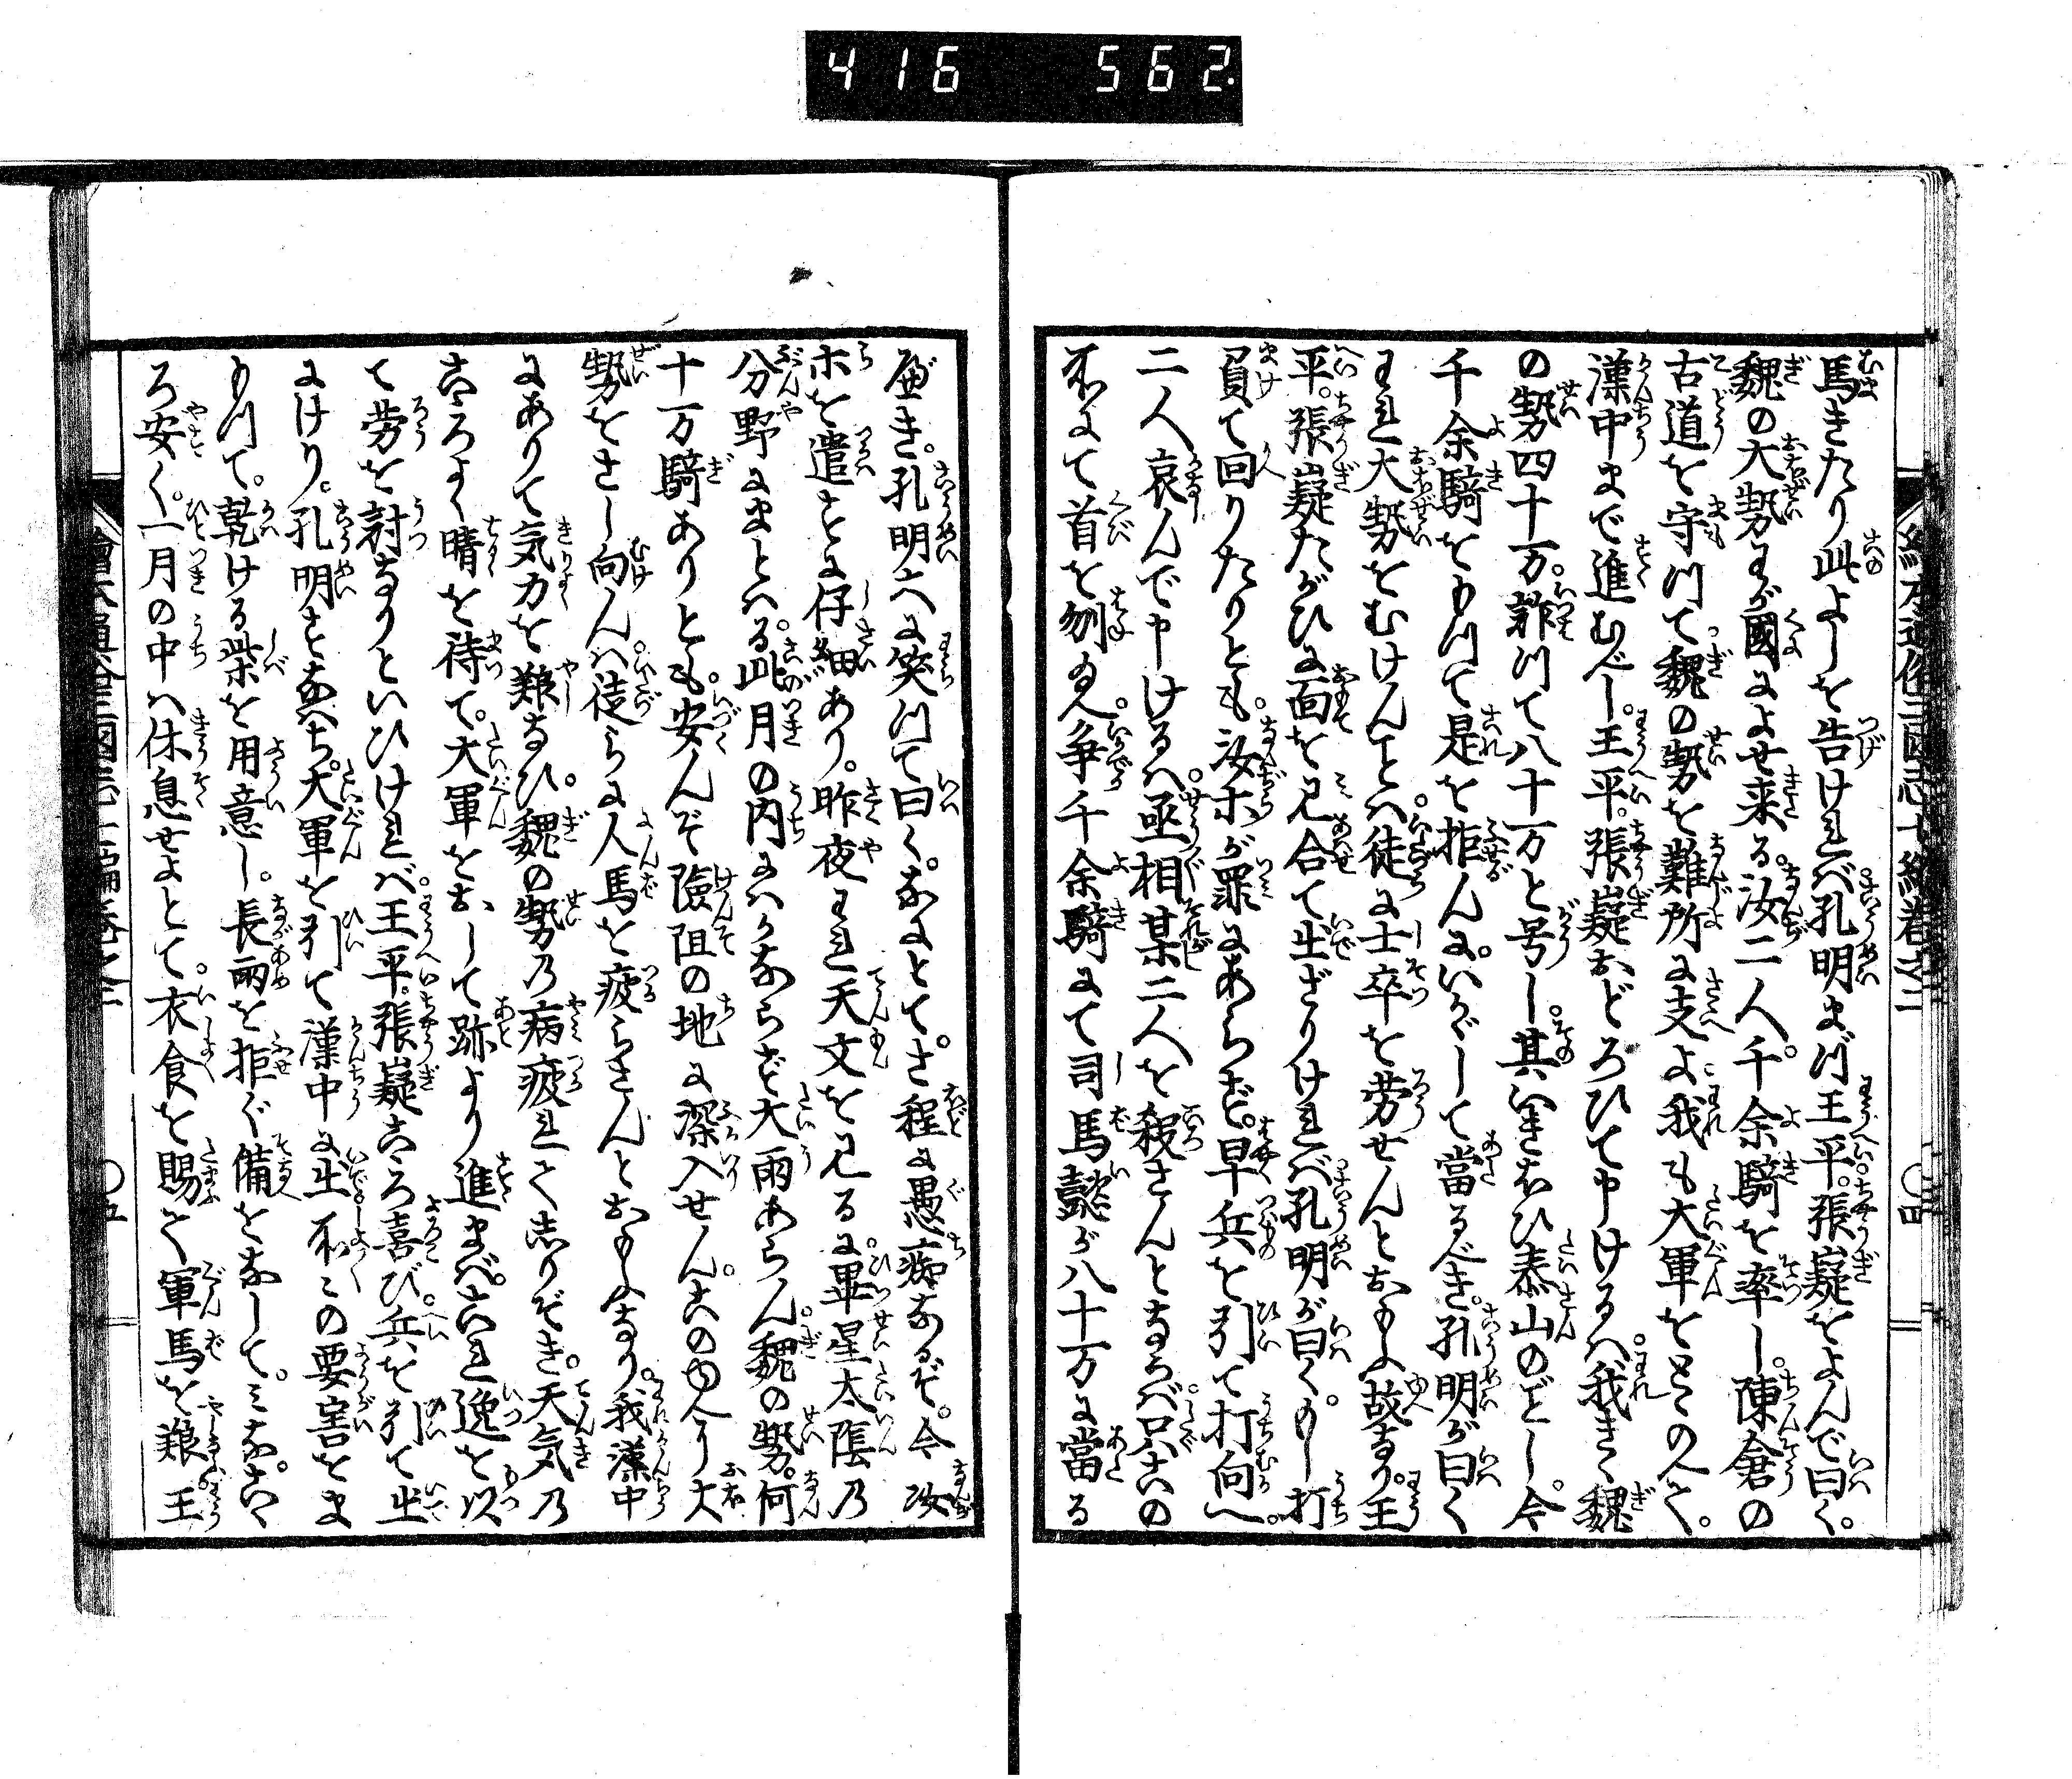 416 562
馬きたり此よしを告けれバ孔明まづ王平。張嶷をよんで曰く。
魏の大勢わが國によせ来る。汝二人。千余騎を率し。陳倉の
古道を守つて魏の勢を難所に支よ我も大軍をとゝのへて。
漢中まで進むべし。王平。張嶷おどろひて申けるハ。我きく魏
の勢四十万。詐つて八十万と号し。其いきおひ泰山のごとし。今
千余騎をもつて是を拒んに。いかゞして當るべき。孔明が曰く
われ大勢をむけんとへ徒に士卒を労せんとおもふ故なり。王
平。張嶷たがひに面を見合て出ざりけれバ孔明が曰く。もし打
負て回りたりとも。汝ホが罪にあらず。早兵を引て打向へ。
二人哀んで申けるハ。丞相某二人を殺さんとならバ只いの
所にて首を刎給へ。争千余騎にて司馬懿が八十万に當る
べき。孔明大に笑つて曰く。なにとて。さ程に愚痴なるぞ。今汝
ホを遣ことに仔細あり。昨夜われ天文を見るに。畢星太陰乃
分野にまとハる。此月の内にハかならず大雨あらん。魏の勢。何
十万騎ありとも。安んぞ險阻の地に深入せん。このゆへに大
勢をさし向んハ。徒らに人馬を疲らさんとおもふなり。我漢中
にありて気力を養なひ。魏の勢乃病疲れてしりぞき。天気乃
こゝろよく晴を待て。大軍をおこして跡より進まバ。これ逸を以
て労を討なりといひけれバ。王平。張嶷こゝろ喜び。兵を引て出
にけり。孔明すなハち。大軍を引て漢中に出所々の要害をま
もつて。乾ける柴を用意し。長雨を拒ぐ備をなして。ミなこゝ
ろ安く。一月の中ハ休息せよとて。衣食を賜て軍馬を養。王
繪本通俗三國志七編巻之二
〇四
〇五